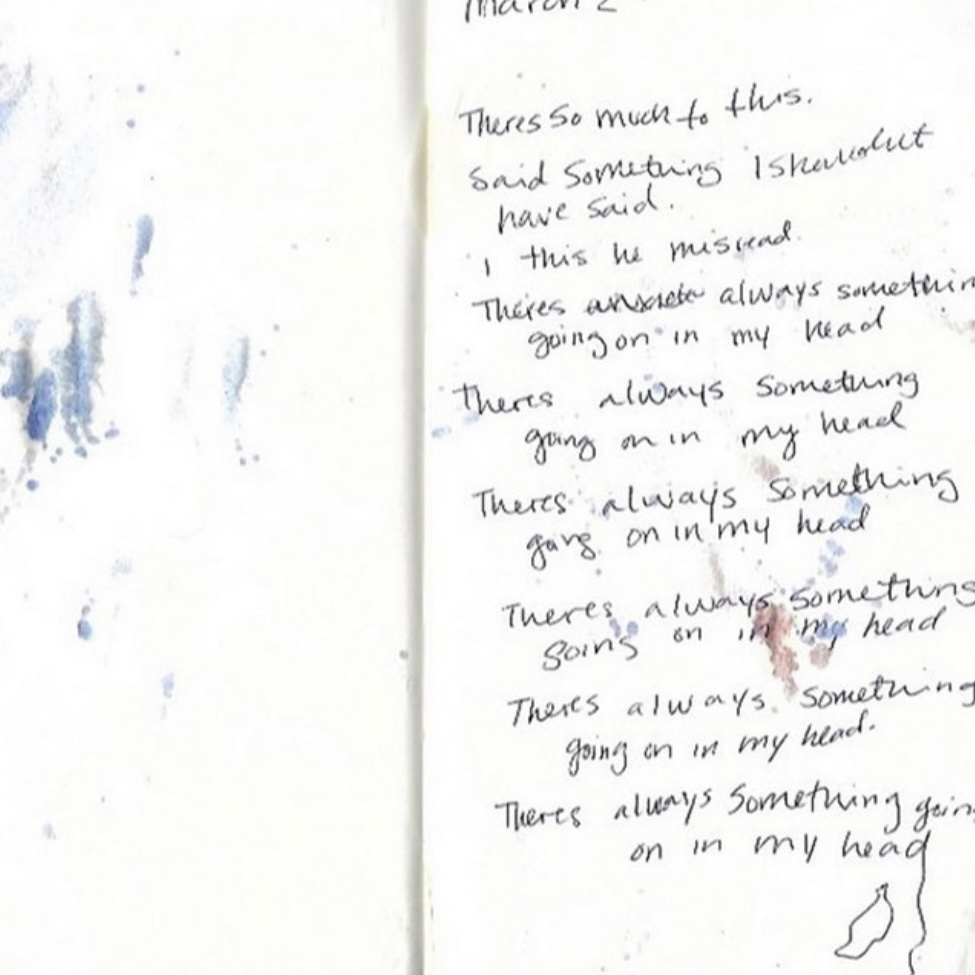 March 2
Theres so much to this.
Said something I
have said.
I this he misread.
Theres always somethin
going on in my head
Theres always something
going on in my head
Theres always something
going on in my head
Theres always something
going on in my head
Theres always something
going on in my head.
Theres always something going
on in my head